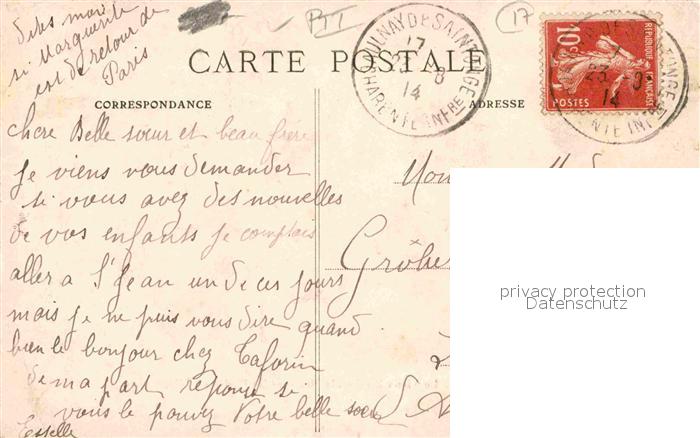 dites moi
si Marguerite
est de retour de
Paris
PTT
17
AULNAY DE SAINTONGE
17
23 8
14
CHARENTE INFRE
10c
RÉPUBLIQUE FRANÇAISE
POSTES
23 8
14
CARTE POSTALE
CORRESPONDANCE
ADRESSE
chere Belle sœur et beau frere
Je viens vous demander
si vous avez des nouvelles
de vos enfants je comptais
aller a St Jean un de ces jours
mais je ne puis vous dire quand
bien le bonjour chez Taforin
de ma part reponse si
vous le pouvez Votre belle soeur
Estelle
privacy protection
Datenschutz